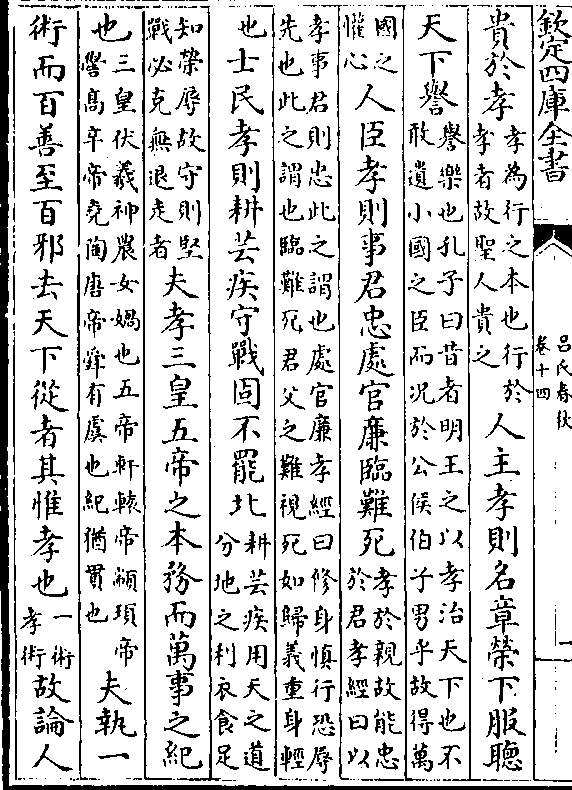 欽定四庫全書
呂氏春秋
卷十四
一
貴於孝
孝為行之本也行於
孝者故聖人貴之
人主孝則名章榮下服聽
天下譽
譽樂也孔子曰昔者明王之以孝治天下也不
敢遺小國之臣而況於公侯伯子男乎故得萬
國之
懽心
人臣孝則事君忠處官廉臨難死
孝於親故能忠
於君孝經曰以
孝事君則忠此之謂也處官廉孝經曰修身慎行恐辱
先也此之謂也臨難死君父之難視死如歸義重身輕
也
士民孝則耕芸疾守戰固不罷北
耕芸疾用天之道
分地之利衣食足
知榮辱故守則堅
戰必克無退走者
夫孝三皇五帝之本務而萬事之紀
也
三皇伏羲神農女媧也五帝軒轅帝顓頊帝
嚳髙辛帝堯陶唐帝舜有虞也紀猶貫也
夫執一
術而百善至百邪去天下從者其惟孝也
一術
孝術
故論人